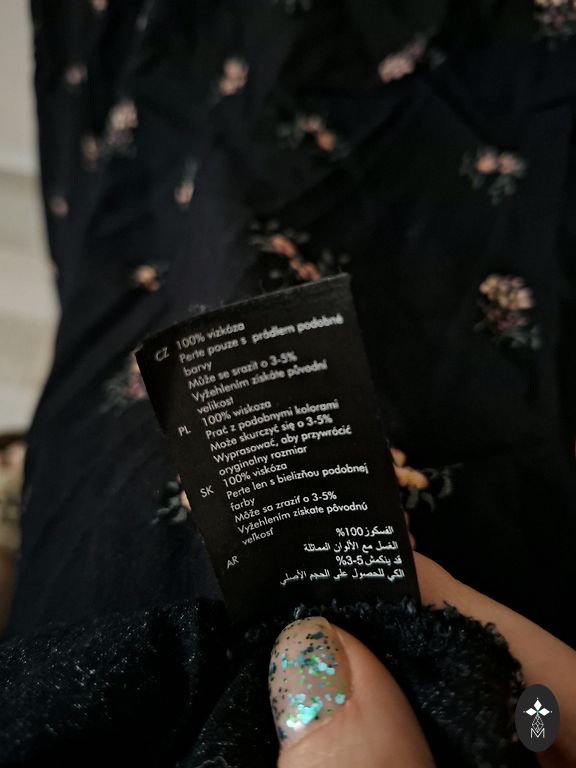 CZ 100% vizkóza
Perte pouze s prádlem podobné
barvy
Může se srazit o 3-5%
Vyžehlením získáte původní
velikost
PL 100% wiskoza
Prać z podobnymi kolorami
Może skurczyć się o 3-5%
Wyprasować, aby przywrócić
oryginalny rozmiar
SK 100% viskóza
Perte len s bielizňou podobnej
farby
Môže sa zraziť o 3-5%
Vyžehlením získate pôvodnú
veľkosť
AR الفسكوز 100%
الغسل مع الألوان المماثلة
قد ينكمش 3-5%
الكي للحصول على الحجم الأصلي
M